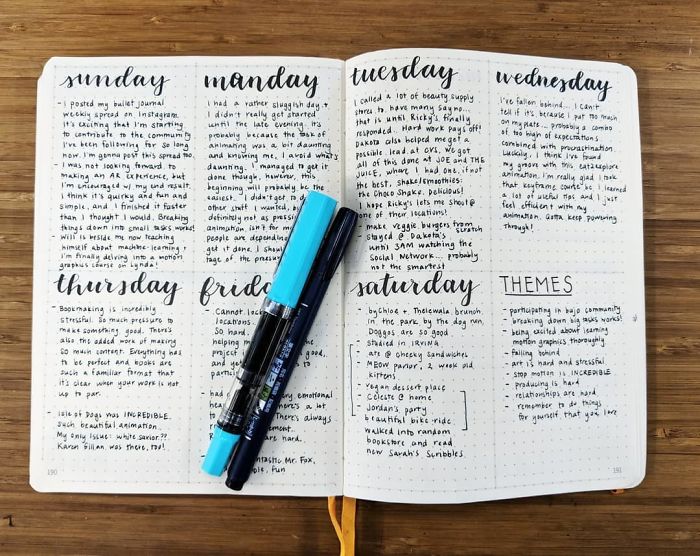 sunday
- I posted my bullet journal
weekly spread on Instagram.
It's exciting that I'm starting
to contribute to the community
I've been following for so long
now. I'm gonna post this spread too.
- I was not looking forward to
making an AR experience, but
I'm encouraged w/ my end result.
I think it's quirky and fun and
simple, and I finished it faster
than I thought I would. Breaking
things down into small tasks works!
- Will is beside me now teaching
himself about machine-learning +
I'm finally delving into a motion
graphics course on Lynda!
monday
I had a rather sluggish day +
I didn't really get started
until the late evening. It's
probably because the task of
animating was a bit daunting
and knowing me, I avoid what's
daunting. I managed to get it
done though, however, this
beginning will probably be the
easiest. I didn't get to
other stuff I wanted,
definitely not as
animation isn't for
people are
get it done. I
of the
tuesday
I called a lot of beauty supply
stores to have many say no...
that is until Ricky's finally
responded. Hard work pays off!
Dakota also helped me get a
possible lead at CVS. We got
all of this done at JOE AND THE
JUICE, where I had one, if not
the best, shake/smoothies:
the Choco Shake. Delicious!
I hope Ricky's lets me shoot @
one of their locations!
- make veggie burgers from scratch
- Stayed @ Dakota's
until 3AM watching the
Social Network... probably
not the smartest
wednesday
I've fallen behind... I can't
tell if it's because I put too much
on my plate... probably a combo
of too high of expectations
combined with procrastination.
Luckily, I think I've found
my groove with this
animation. I'm really glad I took
that keyframe course bc I learned
a lot of useful tips and I just
feel efficient with my
animation. Gotta keep powering
through!
thursday
- Bookmaking is incredibly
stressful. So much pressure to
make something good. There's
also the added work of making
so much content. Everything has
to be perfect and books are
such a familiar format that
it's clear when your work is not
up to par.
- Isle of Dogs was INCREDIBLE.
Such beautiful animation.
My only issue: white savior??
Karen Gillan was there, too!
friday
- Cannot
locations.
So hard.
helping
project
and
had
emotional
There's a lot
There's always
are hard.
Fantastic Mr. Fox,
fun
saturday
- byChloe + Thelewala brunch
in the park by the dog run.
Doggos are so good
- studied in IRVING
- ate @ cheeky sandwiches
- MEOW parlor, 2 week old
kittens
- vegan dessert place
- Celeste @ home
- Jordan's party
- beautiful bike ride
- walked into random
bookstore and read
new Sarah's Scribbles.
THEMES
- participating in bujo community
- breaking down big tasks works!
- being excited about learning
motion graphics thoroughly
- falling behind
- art is hard and stressful
- stop motion is INCREDIBLE
- producing is hard
- relationships are hard
- remember to do things
for yourself that you love
190
191